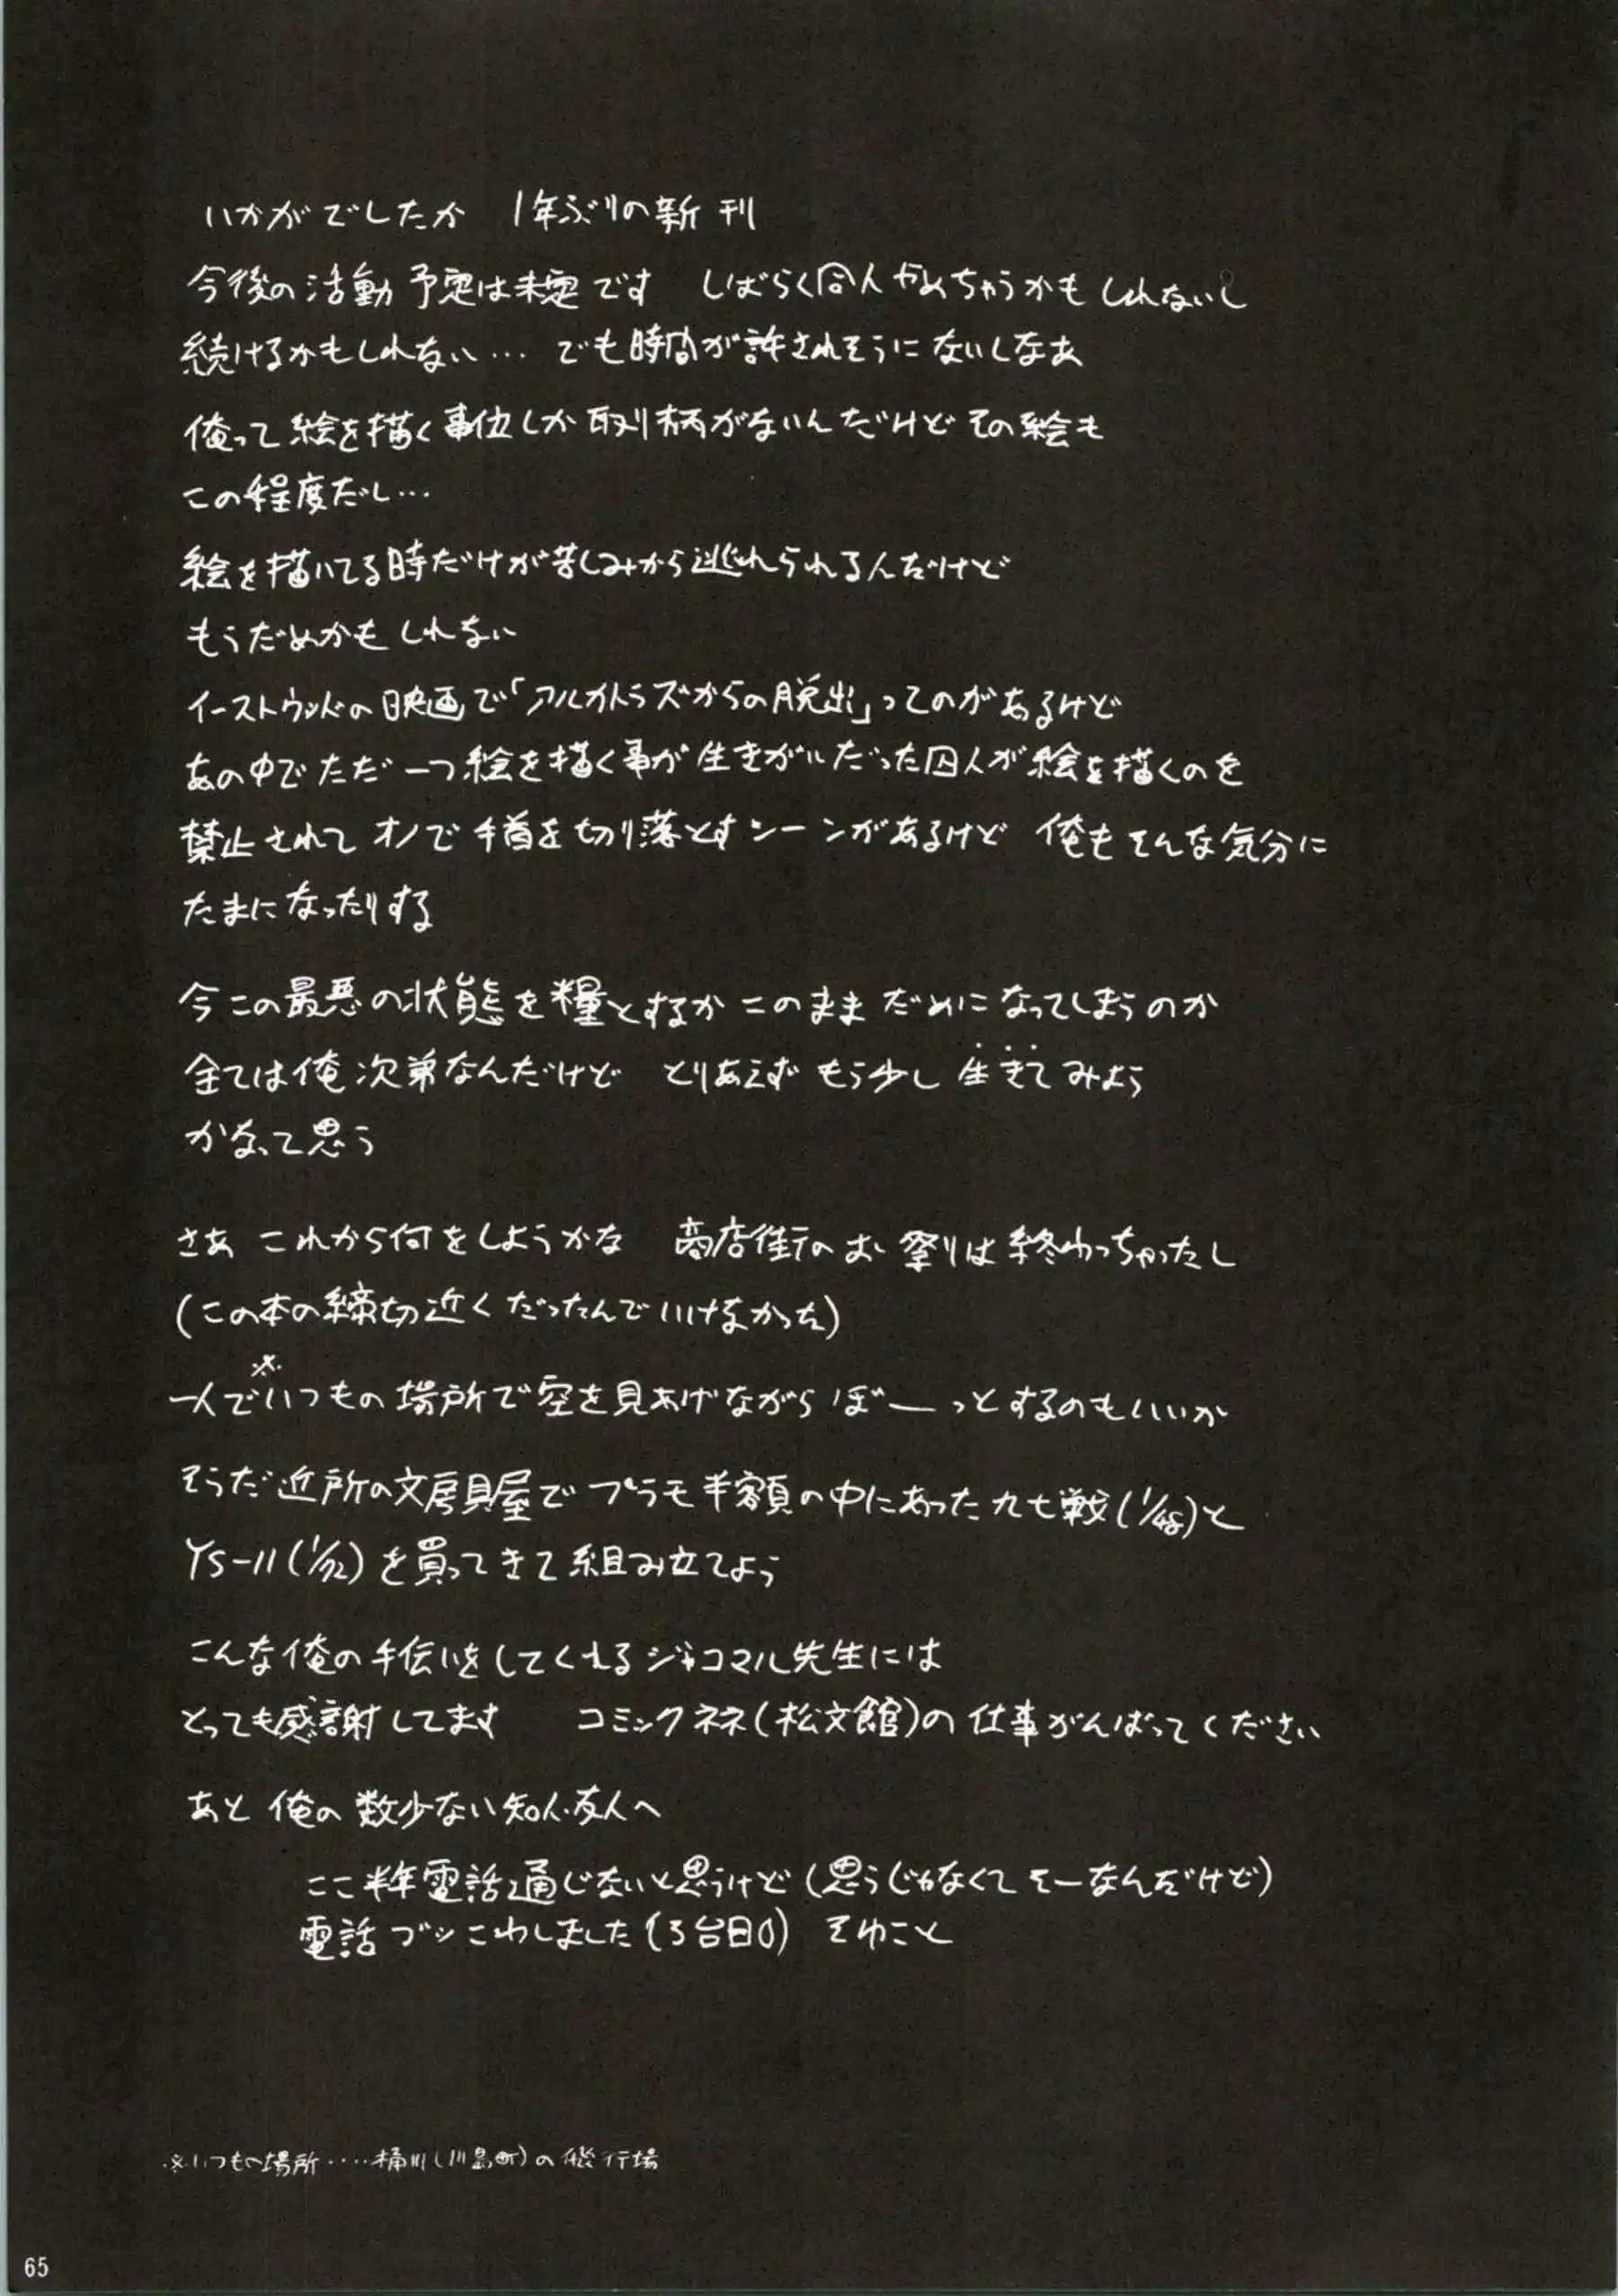 いかがでしたか　1年ぶりの新刊
今後の活動予定は未定です　しばらく同人やめちゃうかもしれないし
続けるかもしれない… でも時間が許されそうにないしなあ
俺って絵を描く事位しか取り柄がないんだけどその絵も
この程度だし…
絵を描いてる時だけが苦しみから逃れられるんだけど
もうだめかもしれない
イーストウッドの映画で「アルカトラズからの脱出」ってのがあるけど
あの中でただ一つ絵を描く事が生きがいだった囚人が絵を描くのを
禁止されてオノで手首を切り落とすシーンがあるけど 俺もそんな気分に
たまになったりする
今この最悪の状態を糧とするかこのままだめになってしまうのか
全ては俺次第なんだけど　とりあえずもう少し生きてみよう
かなって思う
さあ これから何をしようかな　商店街のお祭りは終わっちゃったし
(この本の締切近くだったんでいけなかった)
一人で※いつもの場所で空を見あげながらぼーっとするのもいいか
そうだ近所の文房具屋でプラモ半額の中にあった九七戦(1/48)と
YS-11(1/72)を買ってきて組み立てよう
こんな俺の手伝いをしてくれるジャコマル先生には
とっても感謝してます　コミックネネ(松文館)の仕事がんばってください
あと 俺の数少ない知人・友人へ
ここ半年電話通じないと思うけど(思うじゃなくてそーなんだけど)
電話ブッこわしました(3台目0) そゆこと
※いつもの場所‥‥桶川(川島町)の飛行場
65